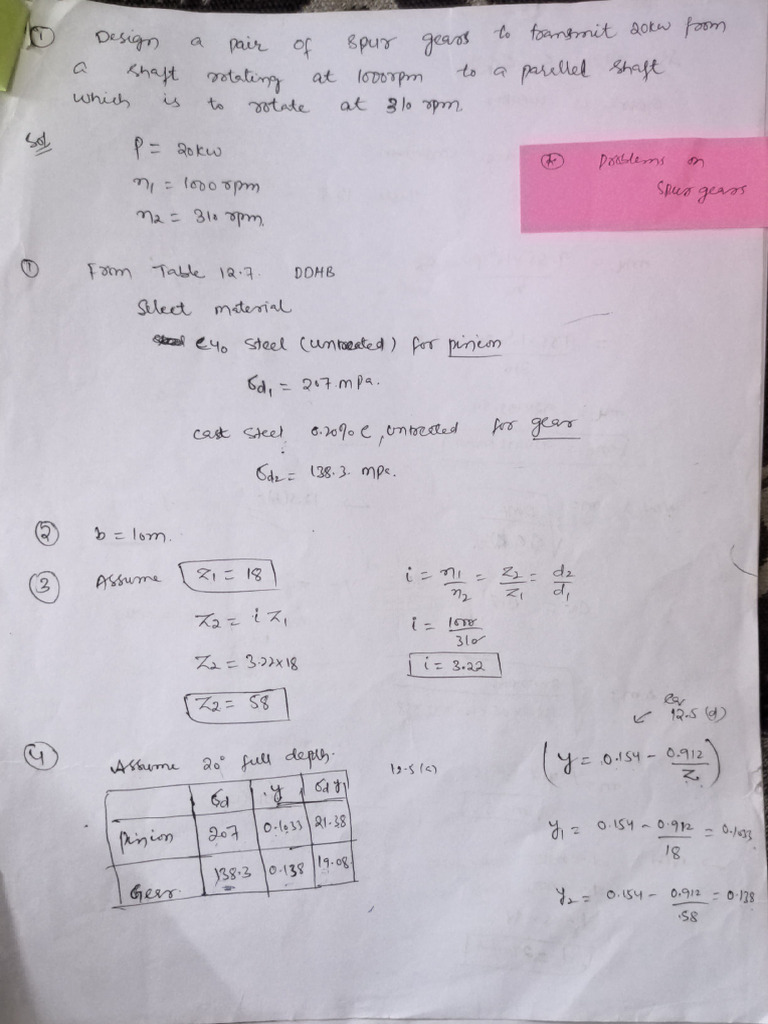 ① Design a pair of spur gears to transmit 20kw from
a shaft rotating at 1000rpm to a parellel shaft
which is to rotate at 310 rpm
Sol P = 20kw
n1 = 1000 rpm
n2 = 310 rpm
Problems on
spur gears
① From Table 12.7. DDHB
Select material
C40 steel (untreated) for pinion
σd1 = 207 mpa.
cast steel 0.20% C, untreated for gear
σd2 = 138.3. mpa.
② b = 10m.
③ Assume Z1 = 18
Z2 = i Z1
Z2 = 3.22x18
Z2 = 58
i = n1/n2 = Z2/Z1 = d2/d1
i = 1000/310
i = 3.22
④ Assume 20° full depth. 12.5(c)
12.5(d)
(y = 0.154 - 0.912/Z)
σd y σd y
Pinion 207 0.1033 21.38
Gear. 138.3 0.138 19.08
y1 = 0.154 - 0.912/18 = 0.1033
y2 = 0.154 - 0.912/58 = 0.138